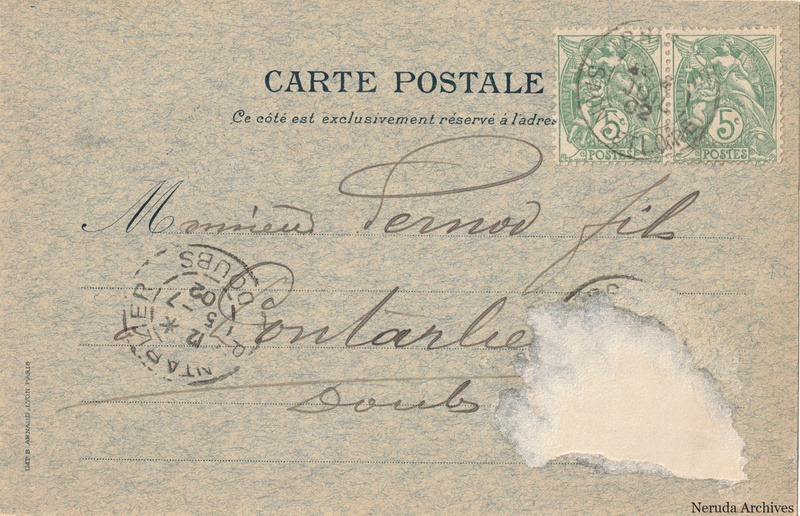 CARTE POSTALE
Ce côté est exclusivement réservé à l'adres
5c 5c
POSTES POSTES
Monsieur Pernod fils
à Pontarlie
Doubs
DOUBS
5-7
02
Neruda Archives